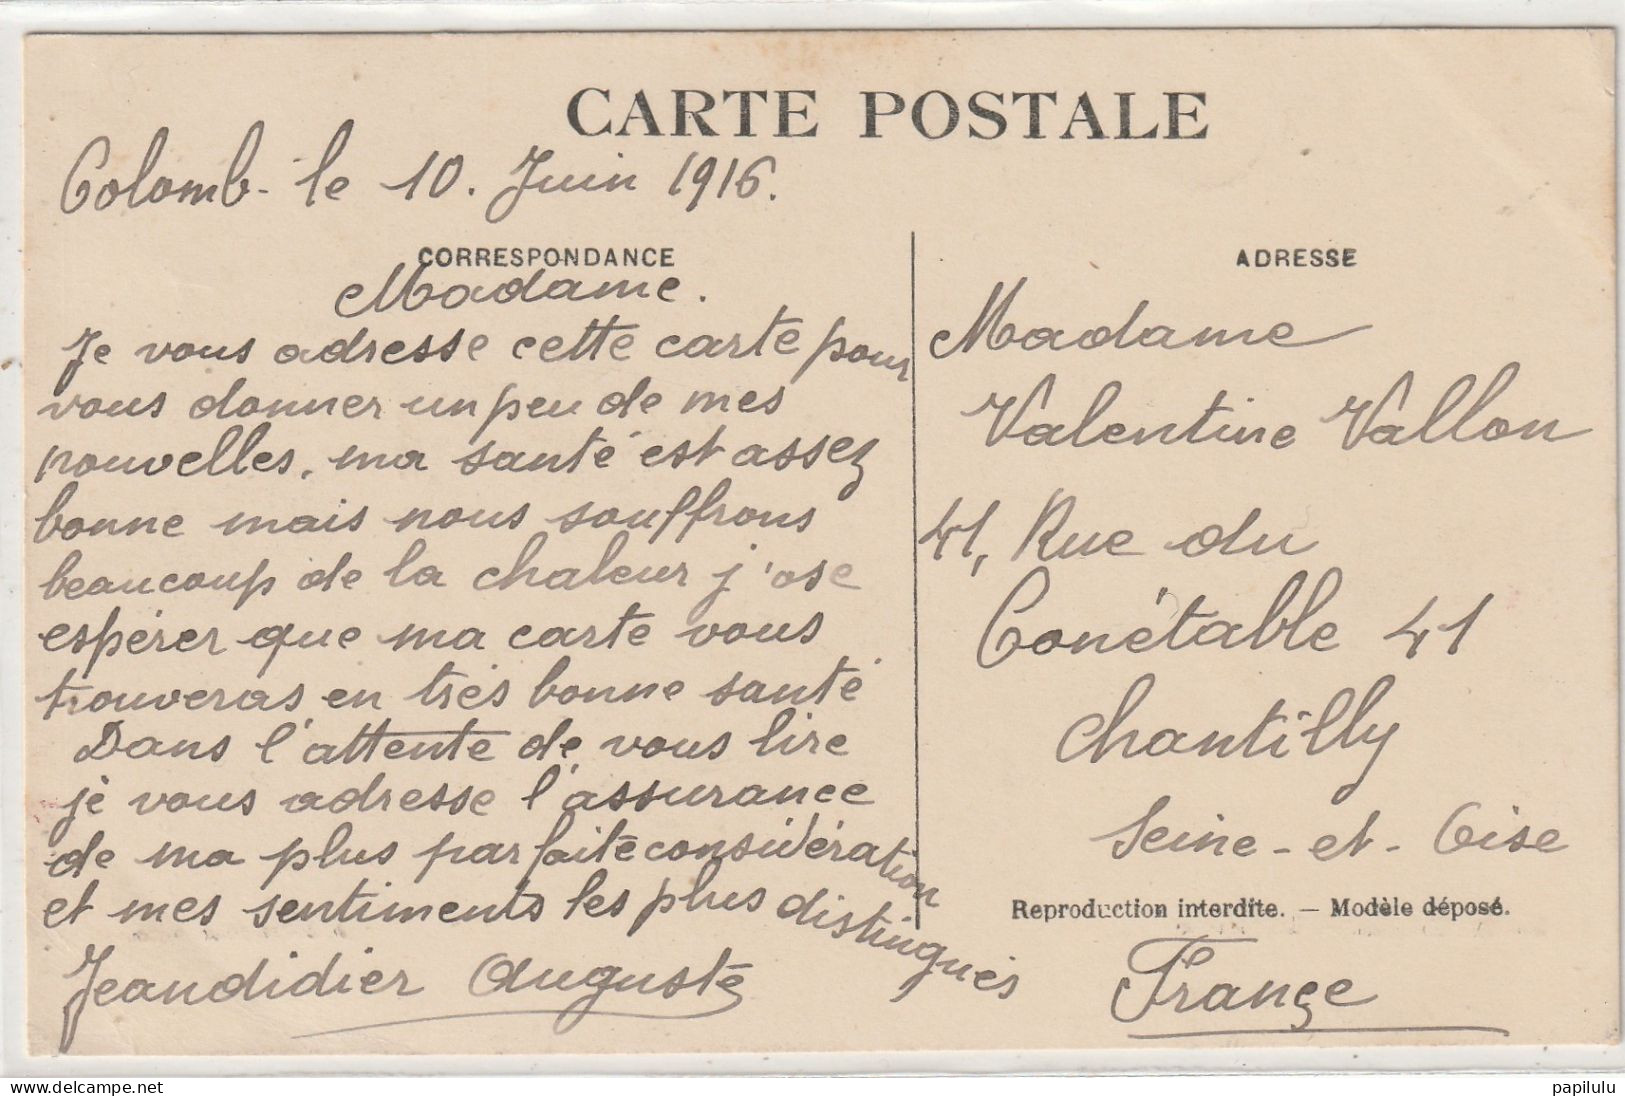 CARTE POSTALE
Colomb. le 10. Juin 1916.
CORRESPONDANCE
Madame.
Je vous adresse cette carte pour
vous donner un peu de mes
nouvelles. ma santé est assez
bonne mais nous souffrons
beaucoup de la chaleur j'ose
espérer que ma carte vous
trouveras en très bonne santé
Dans l'attente de vous lire
je vous adresse l'assurance
de ma plus parfaite considération
et mes sentiments les plus distingués
Jeandidier Auguste
ADRESSE
Madame
Valentine Vallon
41, Rue du
Conétable 41
Chantilly
Seine-et-Oise
Reproduction interdite. — Modèle déposé.
Françe
delcampe.net
papilulu